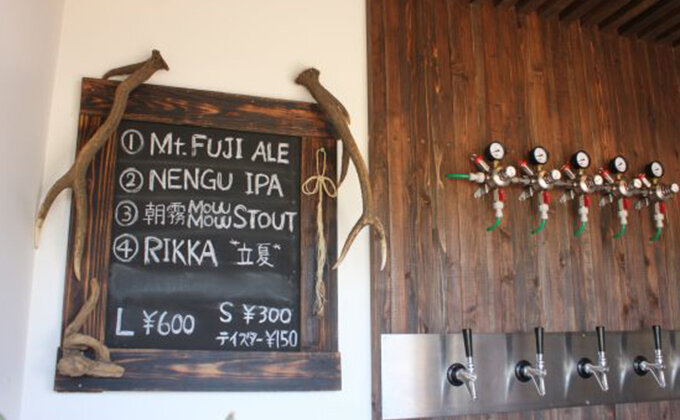 ① Mt. FUJI ALE
② NENGU IPA
③ 朝霧 MOW MOW STOUT
④ RIKKA "立夏"
L ¥600 S ¥300
テイスター ¥150